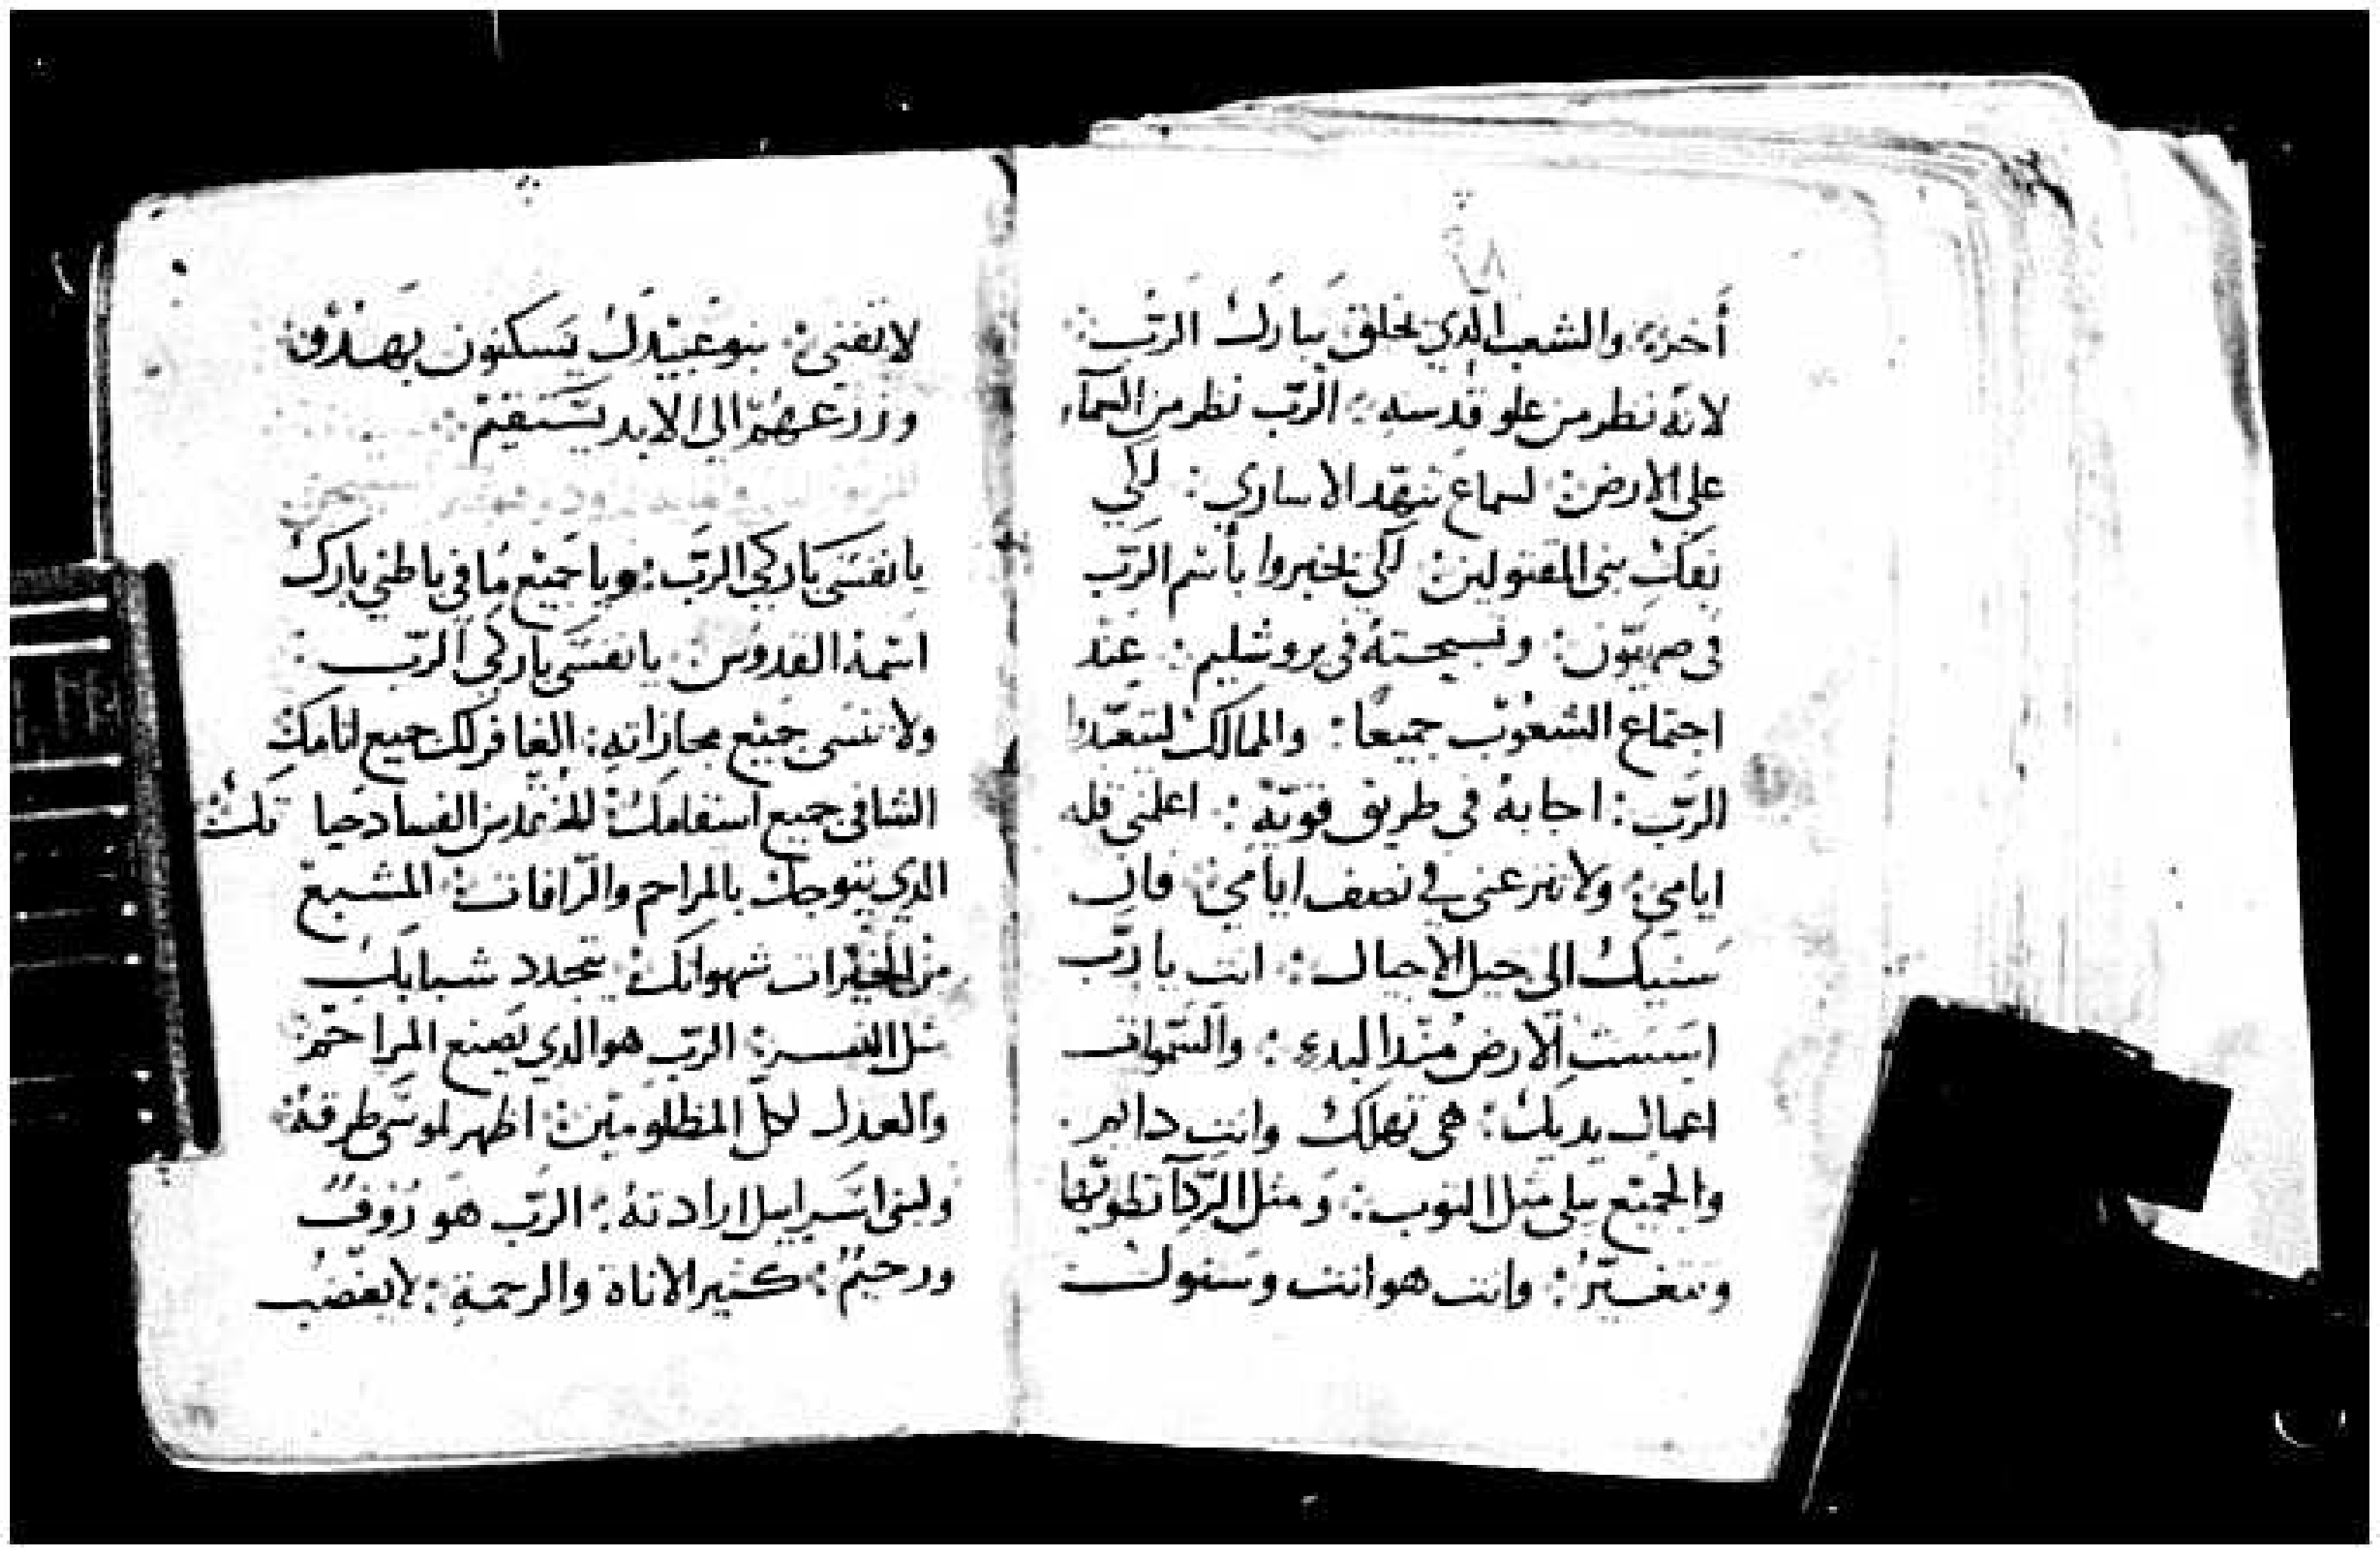 أخر: والشعب الذي يخلق يبارك الرّب:
لانه نظر من علو قدسه: الرّب نظر من السمآء
على الارض: لسماع تنهّد الاساري: لكي
يفك بنى المقتولين: لكي يخبروا بأسم الرّب
فى صهيون: وتسبحته فى يروشليم: عند
اجتماع الشعوب جميعًا: والممالك ليتعبّدوا
للرّب: اجابه فى طريق قوته: اعلمنى قله
ايامي: ولا تنزعنى في نصف ايامي: فان
سنيك الى جيل الاجيال: انت يا رّب
اسست الارض منذ البدء: والسّموات
اعمال يديك: هى تهلك وانت دايم.
والجميع يبلى مثل الثوب: ومثل الردآ تطويها
وتتغيّر: وانت هو انت وسنوك
لا تفنى: بنو عبيدك يسكنون بهدو
وزرعهم الى الابد يستقيم:
يا نفسى باركي الرّب: ويا جميع ما في باطني بارك
اسمه القدوس: يا نفسى باركي الرّب:
ولا تنسى جميع مجازاته: الغافر لك جميع اثامك
الشافى جميع اسقامك: من الفساد حياتك:
الذي يتوجك بالمراحم والرّافات: المشبع
من الخيرات شهواتك: يتجدد شبابك
مثل النسر: الرّب هو الذي يصنع المراحم
والعدل لكلّ المظلومين: اظهر لموسى طرقه:
ولبنى اسرايل ارادته: الرّب هو رؤوفٌ
ورحيمٌ: كثير الاناة والرحمة: لا يغضب